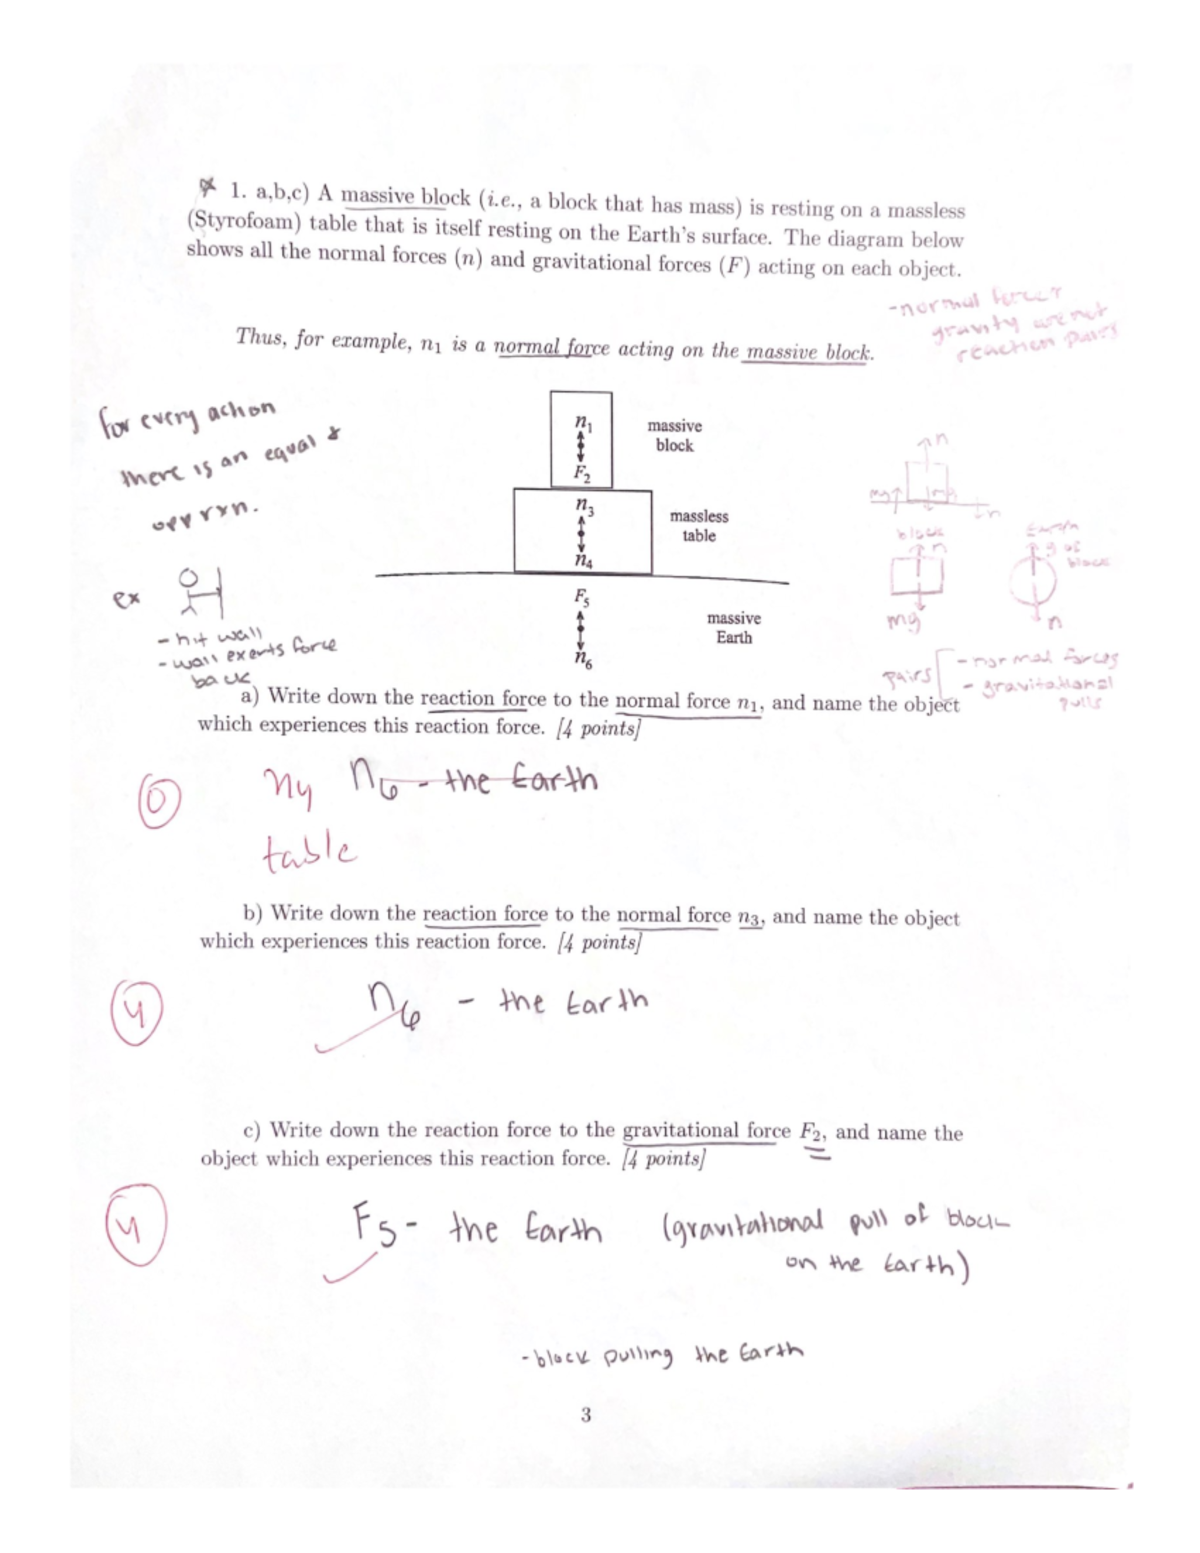 1. a,b,c) A massive block (i.e., a block that has mass) is resting on a massless
(Styrofoam) table that is itself resting on the Earth's surface. The diagram below
shows all the normal forces (n) and gravitational forces (F) acting on each object.
-normal force &
gravity are not
reaction pairs
Thus, for example, n₁ is a normal force acting on the massive block.
for every action
there is an equal &
opp rxn.
ex
- hit wall
- wall exerts force
back
n₁
F₂
massive
block
n₃
n₄
massless
table
F₅
n₆
massive
Earth
n
mg
block
n
mg
Earth
g of
block
n
pairs
- normal forces
- gravitational
pulls
a) Write down the reaction force to the normal force n₁, and name the object
which experiences this reaction force. [4 points]
0
n₆ - the Earth
n4
table
b) Write down the reaction force to the normal force n₃, and name the object
which experiences this reaction force. [4 points]
4
n₆ - the Earth
c) Write down the reaction force to the gravitational force F₂, and name the
object which experiences this reaction force. [4 points]
4
F5 - the Earth (gravitational pull of block
on the Earth)
-block pulling the Earth
3